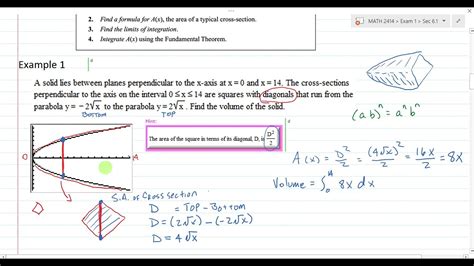 MATH 2414 > Exam 1 > Sec 6.1
2. Find a formula for A(x), the area of a typical cross-section.
3. Find the limits of integration.
4. Integrate A(x) using the Fundamental Theorem.
Example 1
A solid lies between planes perpendicular to the x-axis at x = 0 and x = 14. The cross-sections
perpendicular to the axis on the interval 0 ≤ x ≤ 14 are squares with diagonals that run from the
parabola y = − 2√x to the parabola y = 2√x . Find the volume of the solid.
BOTTOM TOP
(ab)ⁿ = aⁿbⁿ
The area of the square in terms of its diagonal, D, is D²/2
A(x) = D²/2 = (4√x)²/2 = 16x/2 = 8x
Volume = ∫ 8x dx
S.A. of Cross section
D = TOP - Bottom
D = (2√x) - (-2√x)
D = 4√x